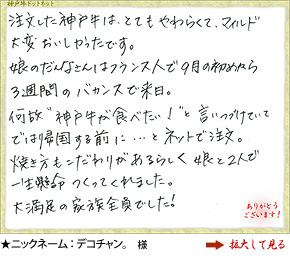 神戸牛ドットネット
注文した神戸牛は、とてもやわらくて、マイルド
大変おいしかったです。
娘のだんなさんはフランス人で9月の初めから
3週間のバカンスで来日。
何故"神戸牛が食べたい!"と言いつづけていて
では帰国する前に…とネットで注文。
焼き方もこだわりがあるらしく娘と2人で
一生懸命つくってくれました。
大満足の家族全員でした!
ありがとう
ございます!
★ニックネーム:デコチャン。 様
拡大して見る